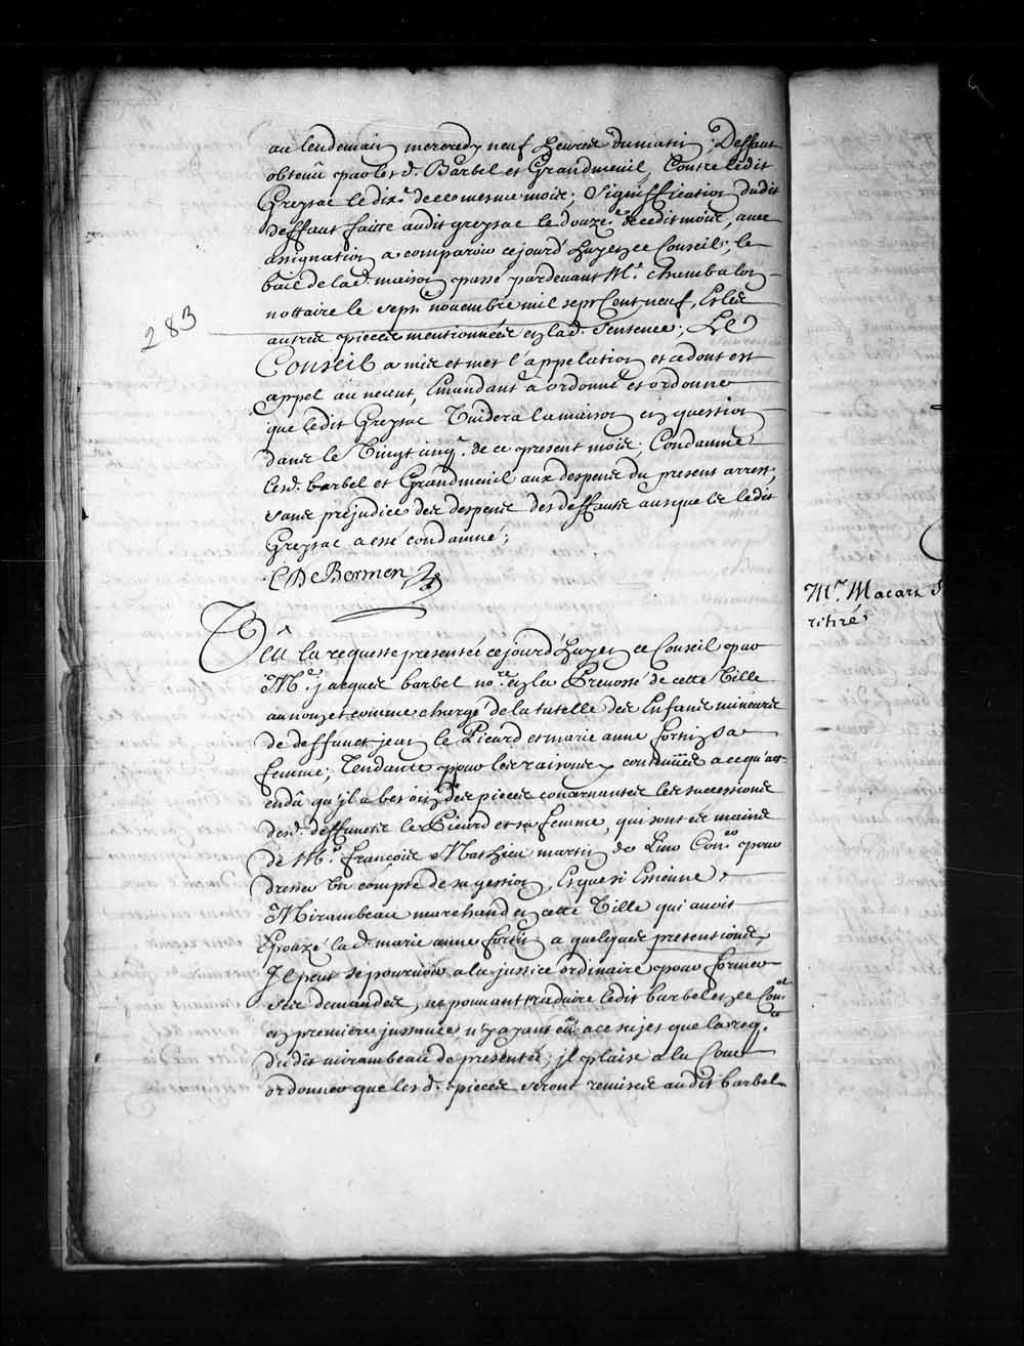 au lendemain mercredy neuf heures du matin; Deffaut
obtenû par lesd. Barbel et Grandmenil, Contre ledit
Greysac le dixe. de ce mesme mois; Signiffication dudit
deffaut faitte audit greysac le douze. de cedit mois, avec
assignation a comparoir cejourd'huy en ce Conseil; le
bail de lad. maison passé pardevant Me. chambalon
nottaire le sept novembre mil sept Cent neuf, Et les
autres pieces mentionnées en lad. Sentence; Le
283
Conseil a mis et met l'appelation et ce dont est
appel au neant, Emandant a ordonné et ordonne
que ledit Greysac Vuidera la maison en question
dans le Vingt cinq. de ce present mois; Condamne
lesd. barbel et Grandmenil aux despens du present arrest,
sans prejudice des despens des deffauts ausquels ledit
Greysac a esté condamné;
C De Bermen
Mr. Macart
retiré
Veu la requeste presentée cejourd'huy en ce Conseil par
Me. jacques barbel nore. en la Prevosté de cette Ville
au nom et comme chargé de la tutelle des Enfans mineurs
de deffunct jean le Picard et marie anne fortin sa
femme; Tendante pour les raisons y contenües a ce qu'att-
endû qu'il a besoin des pieces concernantes les successions
desd. deffuncts le Picard et sa femme, qui sont és mains
de Me. François Mathieu martin de Lino Coner. pour
dresser un compte de sa gestion, Et que si Estienne
Mirambeau marchand en cette Ville qui avoit
Epouzé lad. marie anne fortin a quelques pretentions,
Il peut se pourvoir a la justice ordinaire pour former
ses demandes, ne pouvant traduire ledit barbel en ce Conel.
en premiere instance n'y ayant eü a ce sujet que la reqte.
dudit mirambeau de presentée; jl plaise a la Cour
ordonner que lesd. pieces seront remises audit barbel